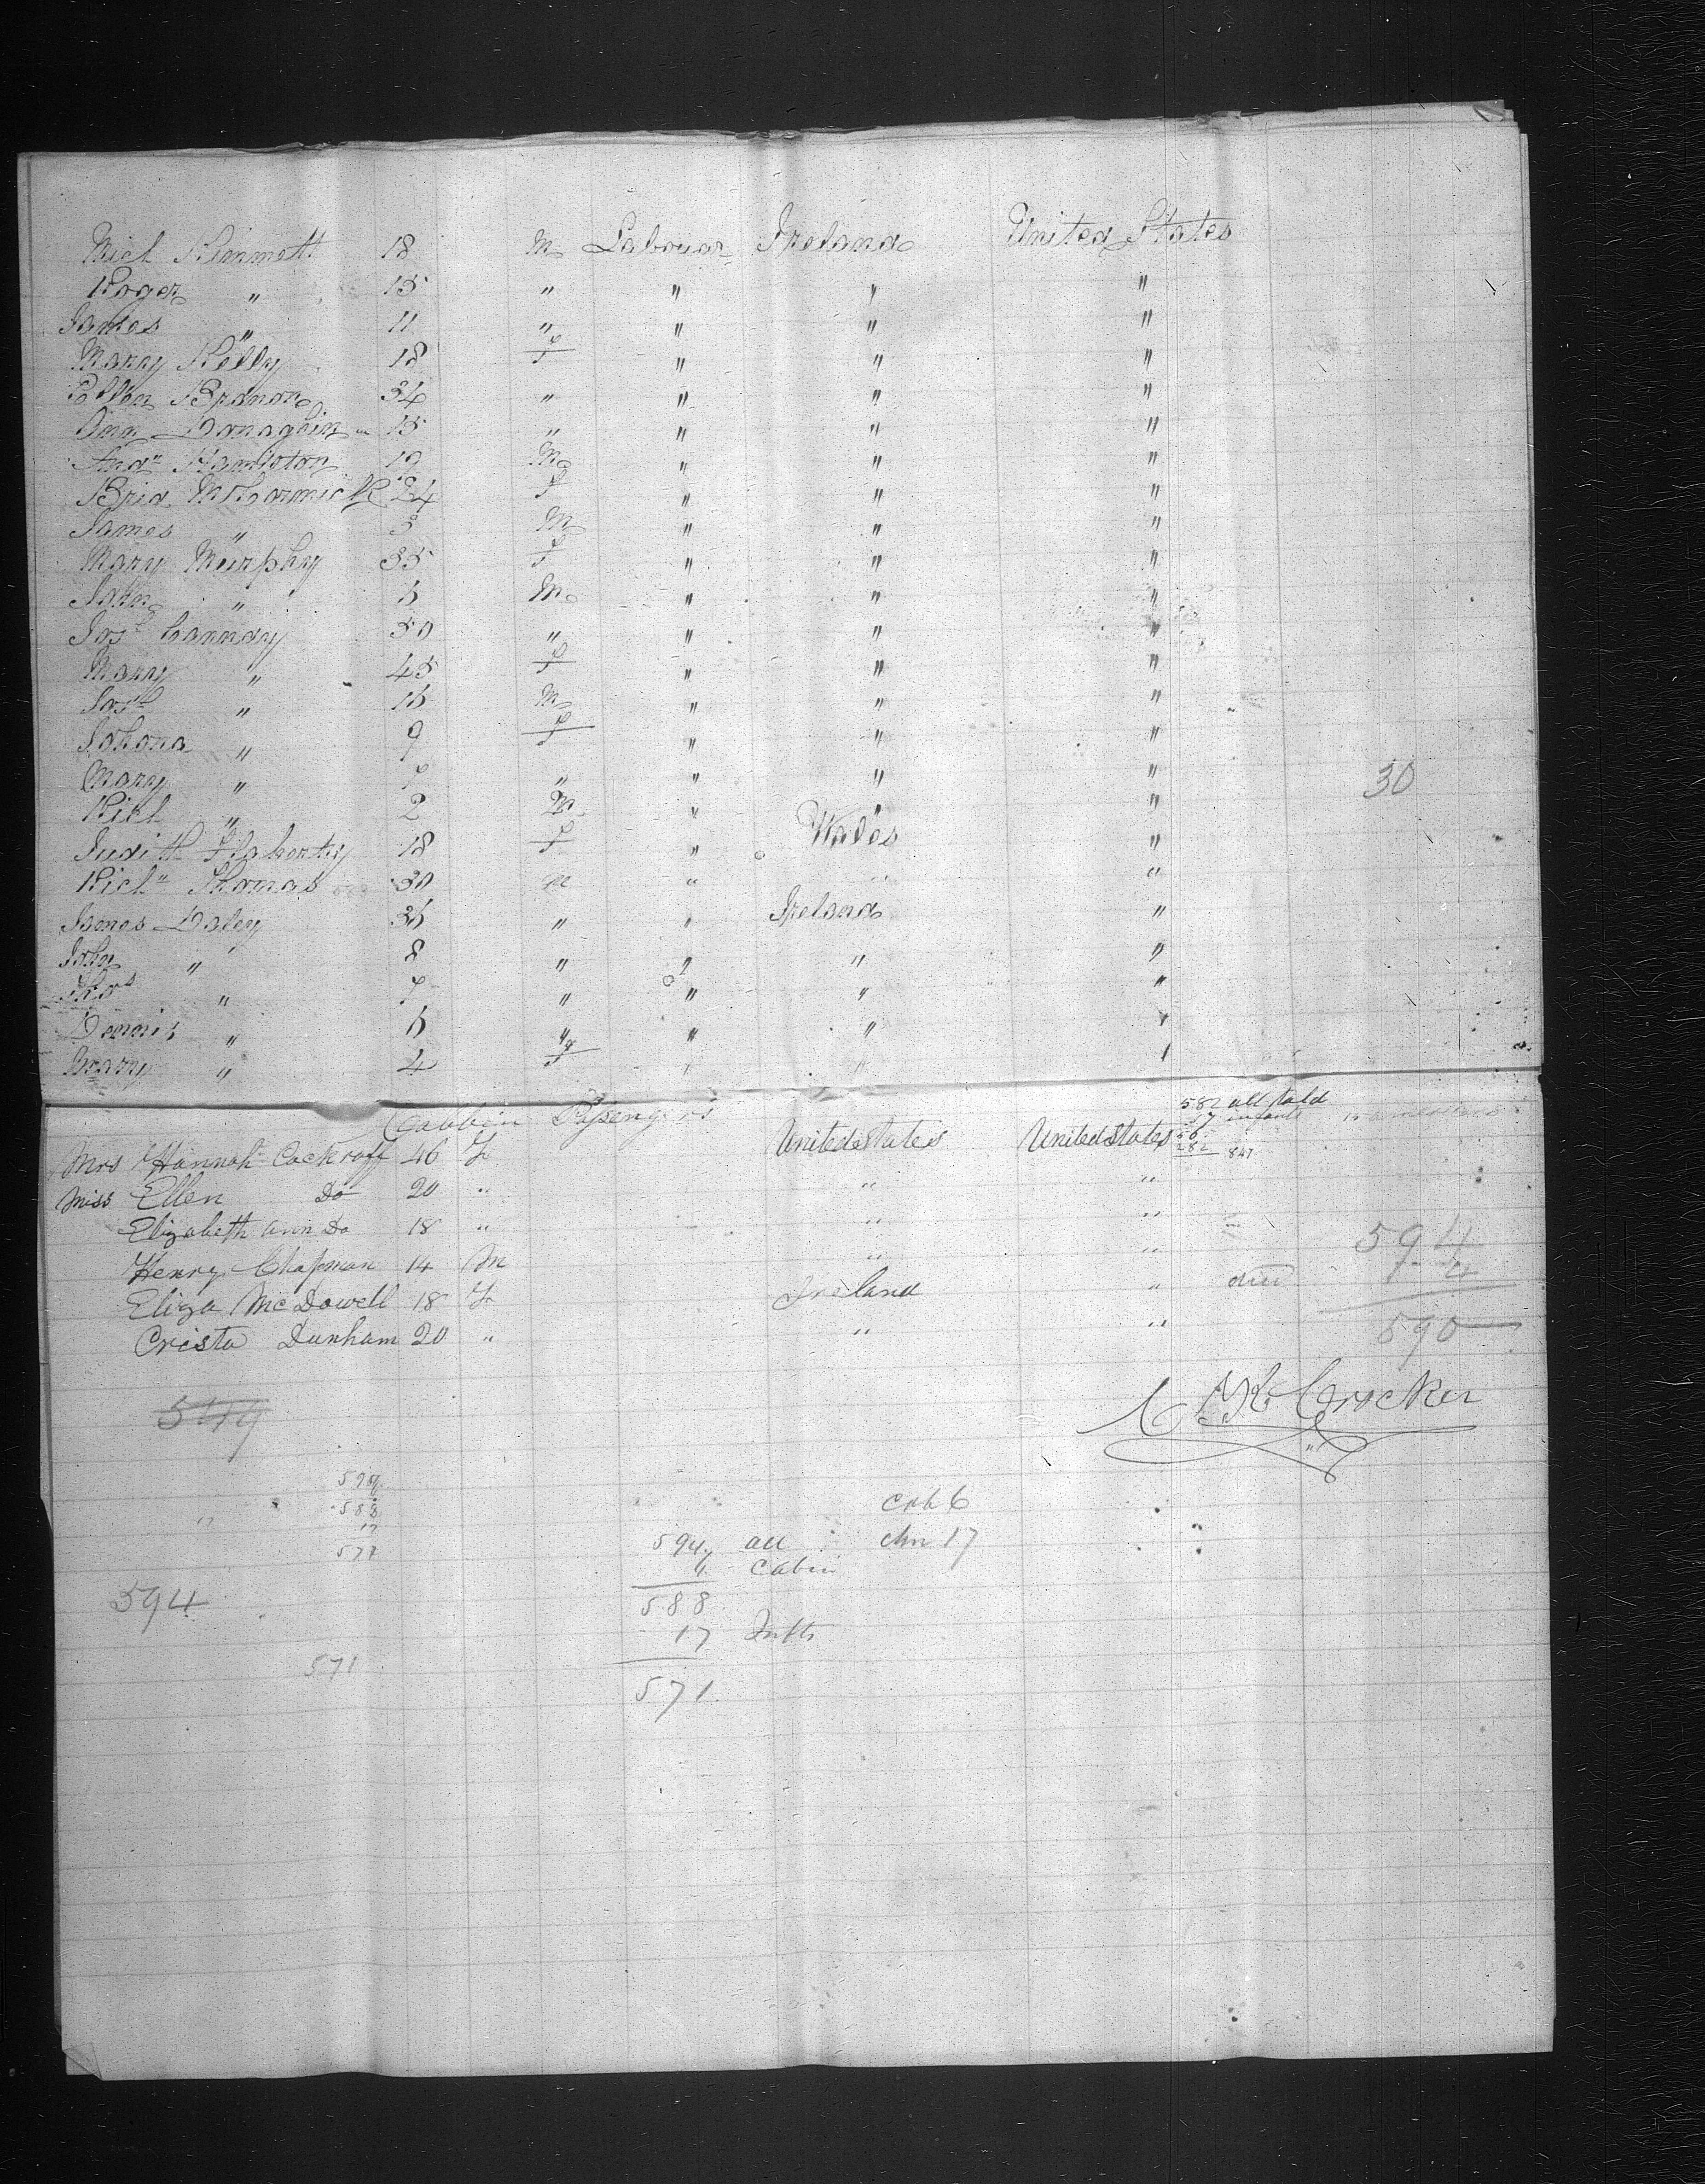 Mich Kimmett 18 M Labourer Ireland United States
Roger " 15 " " " "
James " 11 " " " "
Mary Kelly 18 F " " "
Ellen Branon 34 " " " "
Ann Donaghin 15 " " " "
Andw Hamilton 19 M " " "
Brid McCormick 24 F " " "
James " 3 M " " "
Mary Murphy 35 F " " "
John " 6 M " " "
Josh Cannay 50 " " " "
Mary " 45 F " " "
Josh " 16 M " " "
Johana " 9 F " " "
Mary " 7 " " " "
Rich " 2 M " " " 30
Judith Flaherty 18 F " Wales "
Richd Thomas 30 M " " "
James Daley 36 " " Ireland "
John " 8 " " " "
Thos " 7 " " " "
Dennis " 6 " " " "
Mary " 4 F " " "
Cabbin Passengers 582 all told
17 infants
Mrs Hannah Cockroff 46 F United States United States
Miss Ellen Do 20 " " "
Elizabeth Ann Do 18 " " "
594
Henry Chapman 14 M " "
died 4
Eliza McDowell 18 F Ireland "
590
Crista Dunham 20 " " "
C H Crocker
549
588 Cab 6
17
571 594 all Chn 17
6 Cabin
594 588
17 Infts
571
571